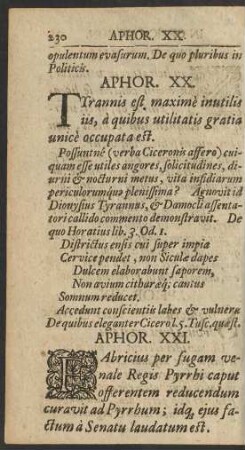 230 APHOR. XX.
opulentum evasurum. De quo pluribus in
Politicis.
APHOR. XX.
TYrannis est, maximè inutilis
iis, à quibus utilitatis gratia
unicè occupata est.
Possuntnè (verba Ciceronis affero) cui-
quam esse utiles angores, solicitudines, di-
urni & nocturni metus, vita insidiarum
periculorumque plenissima? Agnovit id
Dionysius Tyrannus, & Damocli assenta-
tori callido commento demonstravit. De
quo Horatius lib. 3. Od. 1.
Districtus ensis cui super impia
Cervice pendet, non Siculæ dapes
Dulcem elaborabunt saporem,
Non avium citharæq; cantus
Somnum reducet.
Accedunt conscientiæ labes & vulnera
De quibus eleganter Cicero l. 5. Tusc. quæst.
APHOR. XXI.
FAbricius per fugam ve-
nale Regis Pyrrhi caput
offerentem reducendum
curavit ad Pyrrhum; idq; ejus fa-
ctum à Senatu laudatum est.